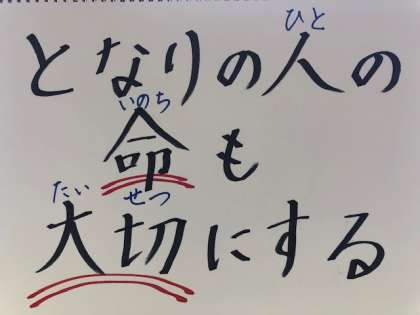 となりの人の
ひと
命も
いのち
大切にする
たいせつ